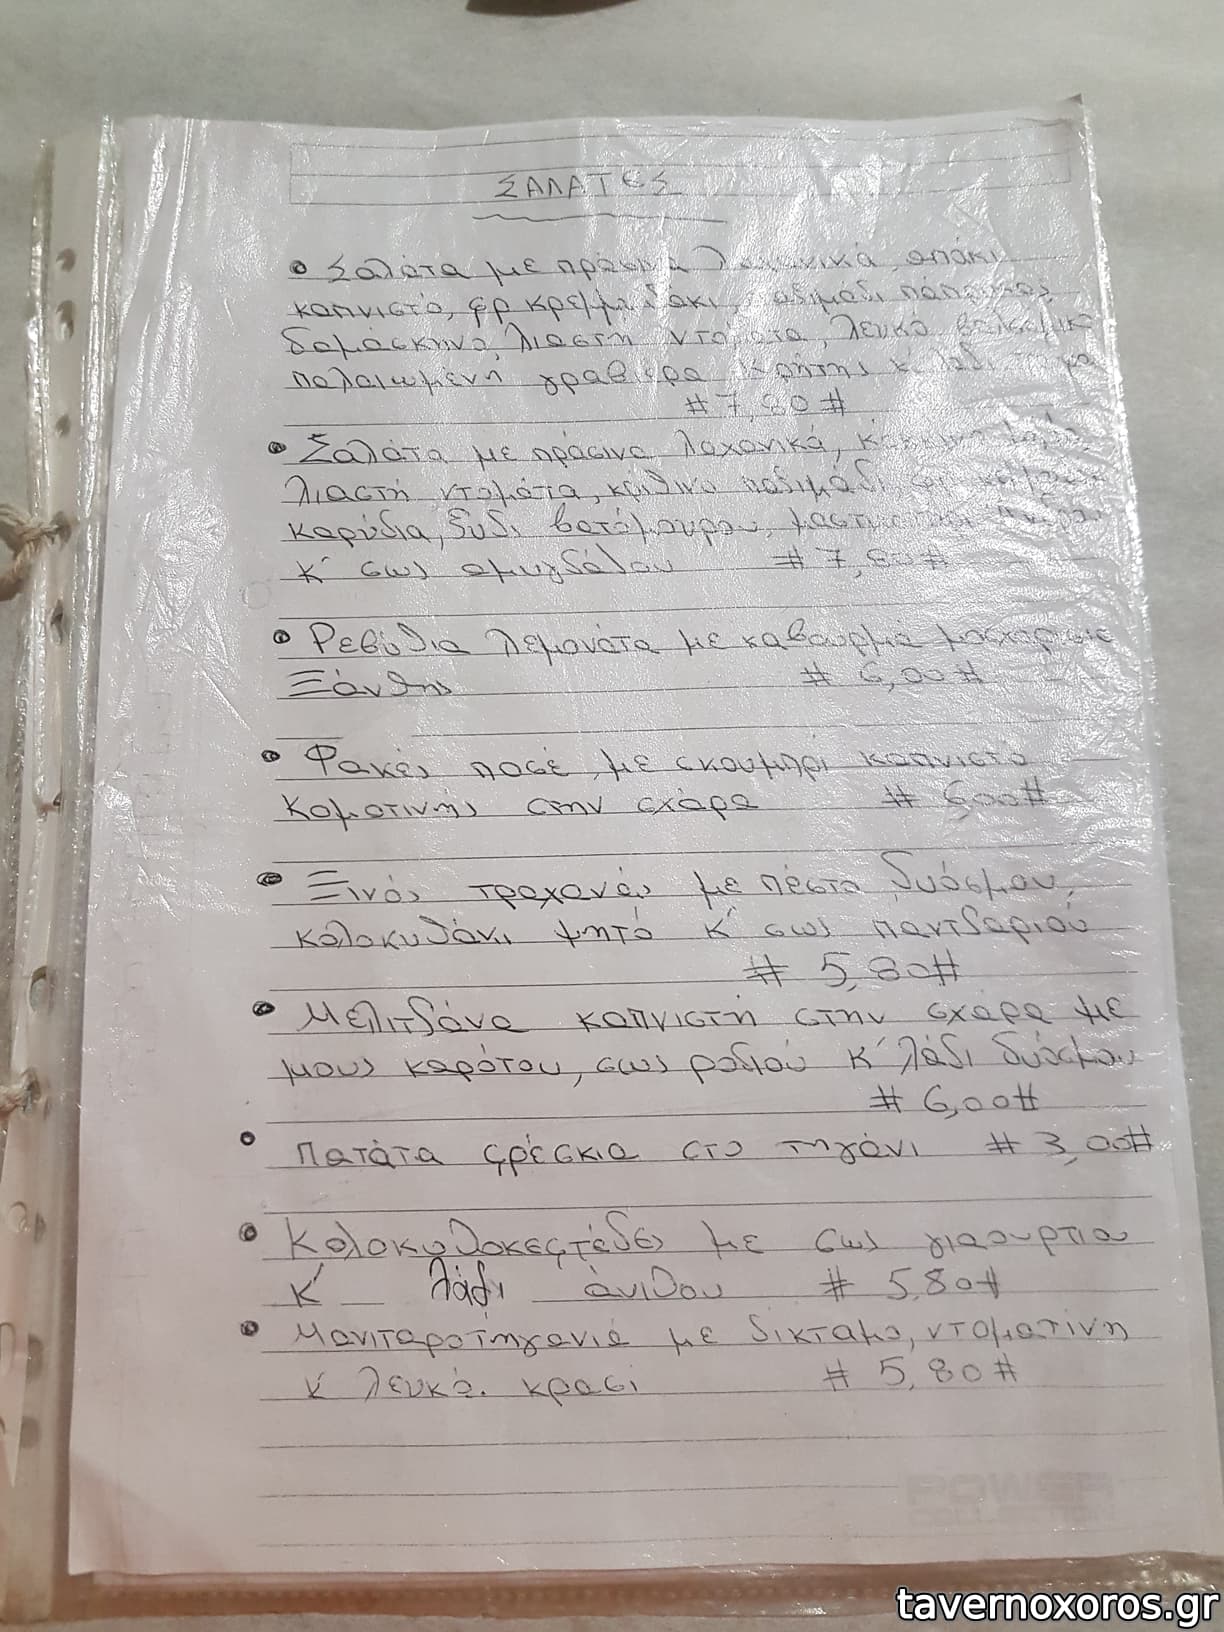 ΣΑΛΑΤΕΣ
Σαλάτα με πράσινα λαχανικά, απάκι
καπνιστό, φρ κρεμμυδάκι, παξιμάδι
δαμάσκηνο, λιαστή ντομάτα, λευκό βαλσάμικο
παλαιωμένη γραβιέρα Κρήτης κ' λάδι
# 7,80 #
Σαλάτα με πράσινα λαχανικά,
λιαστή ντομάτα, κρίθινο παξιμάδι
καρύδια, ξύδι βατόμουρου,
κ' σως αμυγδάλου # 7,80 #
Ρεβύθια λεμονάτα με καβουρμά
Ξάνθης # 6,00 #
Φακές ποσέ με σκουμπρί καπνιστό
Κομοτινής στην σχάρα
Ξινός τραχανάς με πέστο δυόσμου,
κολοκυθάκι ψητό κ' σως παντζαριού
# 5,80 #
Μελιτζάνα καπνιστή στην σχάρα με
μους καρότου, σως ροδιού κ' λάδι δυόσμου
# 6,00 #
Πατάτα φρέσκια στο τηγάνι # 3,00 #
Κολοκυθοκεφτέδες με σως γιαουρτιου
κ' λάδι άνιθου # 5,80 #
Μανιταροτηγανιά με δίκταμο, ντοματίνη
κ' λευκό. κρασί # 5,80 #
tavernoxoros.gr